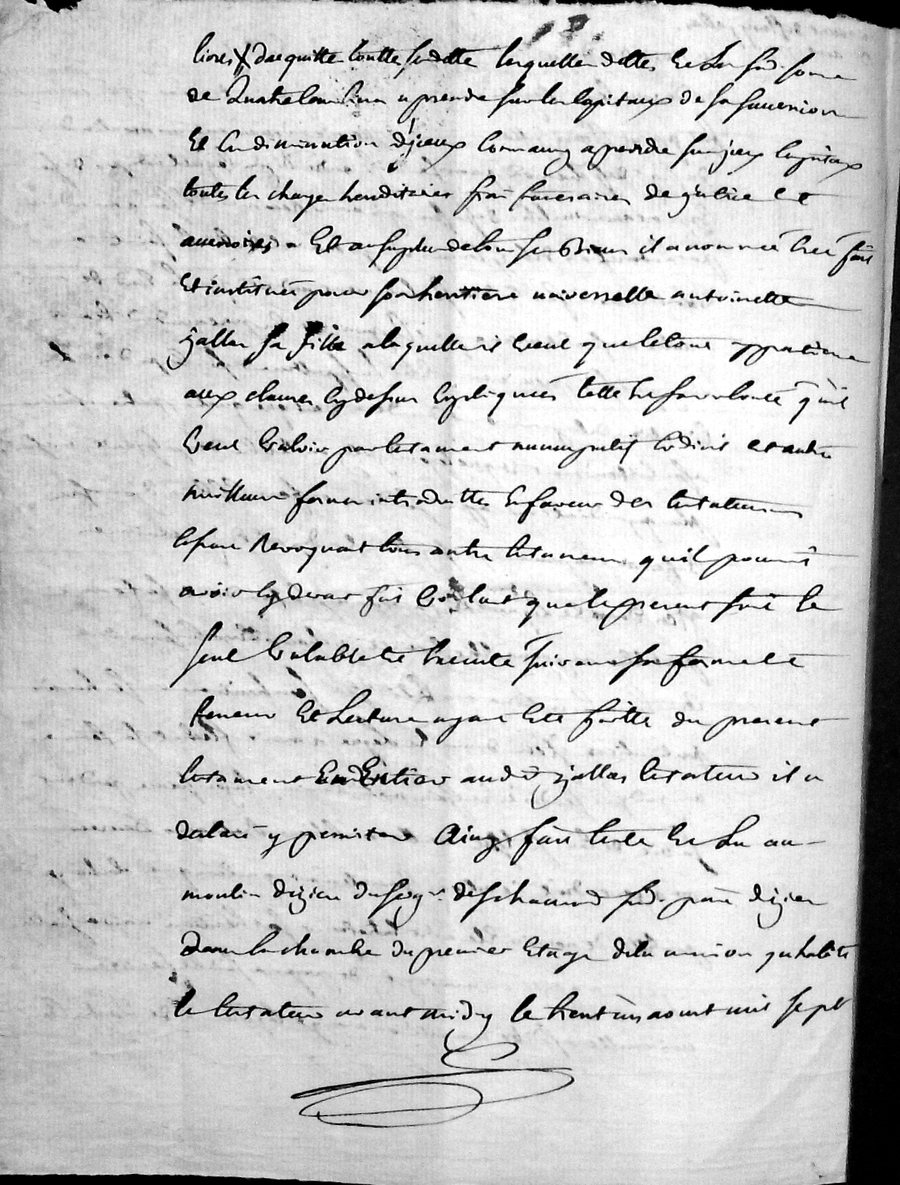 livres d'acquitte toutte sa dette lesquelles dettes et la su.d some
de quatre cens livres a prendre sur les capitaux de sa succession
et en diminution d'yceux comme aussy a prendre sur yceux capitaux
toutes les charges hereditaires frais funeraires de justice et
accessoires Et au surplus de tous ses biens il a nommé creé fait
et institué pour son heritiere universelle antoinette
jallas sa fille a laquelle il veut que le tout appartiene
aux clauses cy dessus expliquées telle est sa volonté qu'il
veut valoir par testament nuncupatif codicil et autre
meilleure forme introduittes en faveur des testateurs
lesquel Revoquant tous autre testament qu'il pourroit
avoir cy devant fait voulant que le present soit le
seul valable et execute suivant sa forme et
teneur Et Lecture ayant ete faitte du present
testament En Entier audit jallas testateur il a
declaré y persister Ainsy fait teste et lu au
moulin d'izieu du seigr de st chamond sud. parr d'izieu
dans la chambre du premier Etage de la maison qu'habite
le testateur avant midy le trent'un aoust mil sept